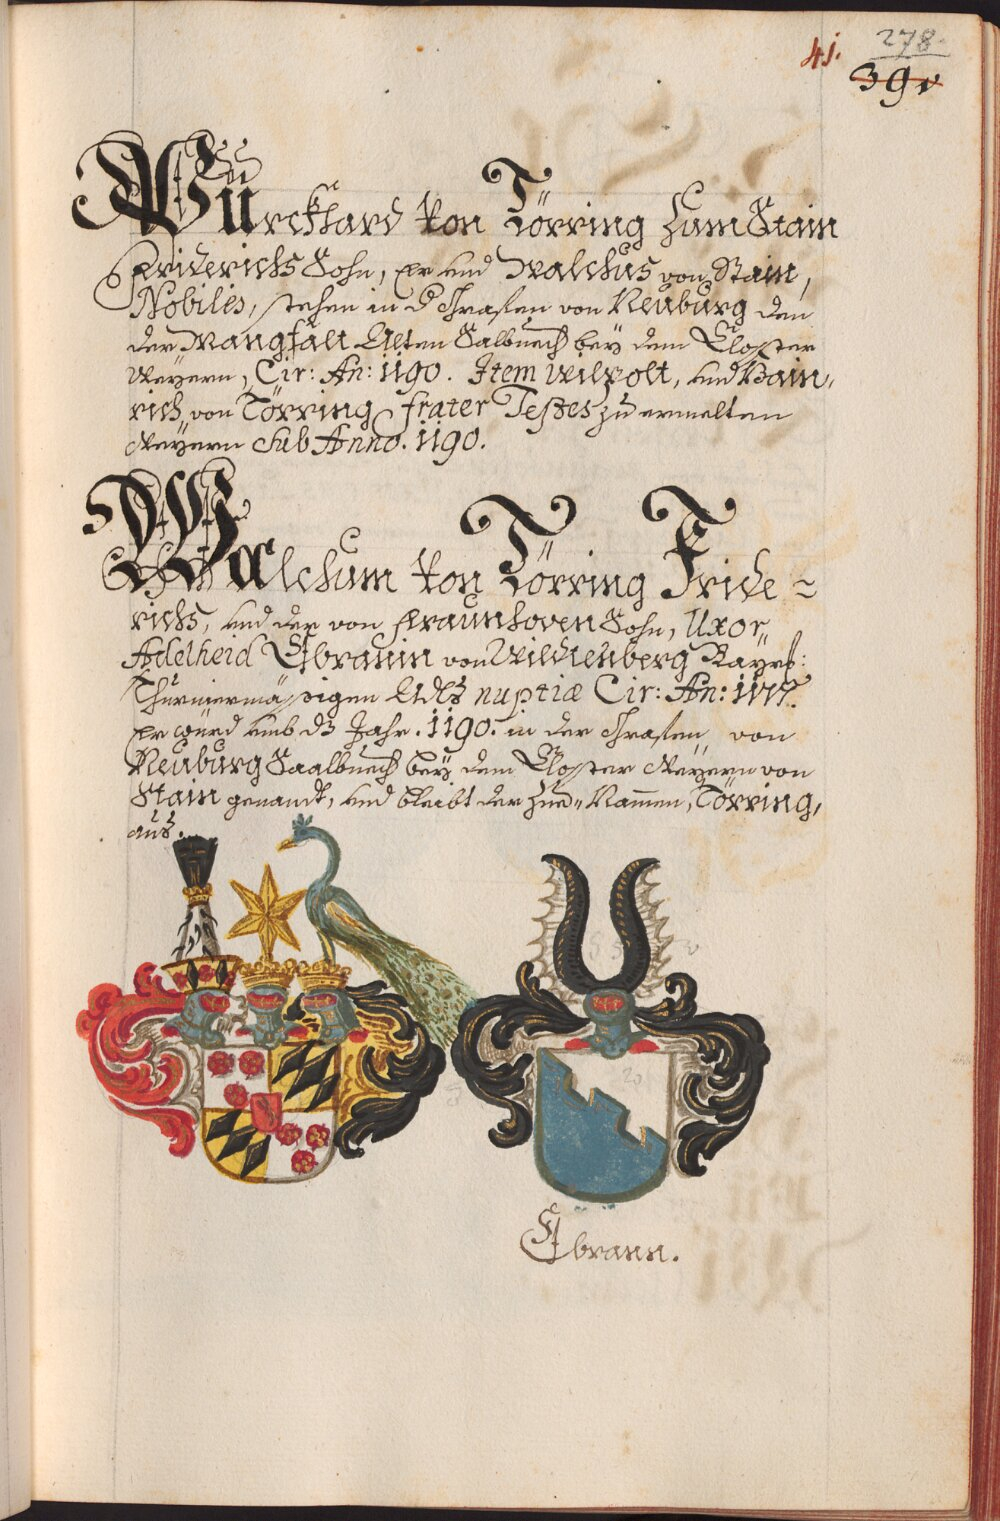 41. 278.
390
Bürckhard von Törring zum Stain
Friderichs Sohn, Er und Walchus von Stain,
Nobiles, stehen in d Thraslen von Neüburg den
der Mangfalt Alten Salbuech bey dem Closter
Weyern, Cir: An: 1190. Item Wilpolt, und Hain„
rich von Törring frater Testes zu ermelten
Weyern sub Anno. 1190.
Walchum von Törring Fride=
richs, und der von Fraunhoven Sohn, Uxor„
Adelheid Ebranin von Wildtenberg Bayrs:
Thurniermässigen Adls nuptiæ Cir: An: 1177.
Er würd umb dz Jahr. 1190. in der Thraslen von
Neuburg Saalbuech bey dem Closter Weyern von
Stain genandt, und bleibt der Zue„ Nammen, Törring,
aus.
Ebrann.